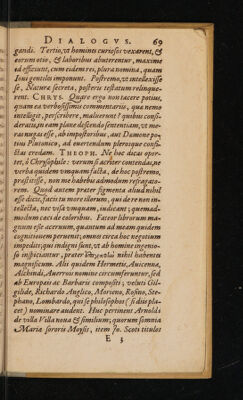 DIALOGVS. 69
gandi. Tertio, vt homines curiosos vexarent, &
eorum otio, & laboribus abuterentur, maxime
ad efficiunt, cum eidem rei, plura nomina, quam
Ioui gentiles imponunt. Postremo, vt intellexisse
se, Naturæ secreta, posteris testatum relinque-
rent. CHRYS. Quare ergo non tacere potius,
quam ea verbosissimis commentariis, quæ nemo
intelligit, perscribere, maluerunt? quibus consi-
deratis, in eam plane descendo sententiam, vt me-
ras nugas esse, ab impostoribus, aut Dæmone po-
tius Plutonico, ad euertendum plerosque confi-
ctas credam. THEOPH. Ne hoc dicas opor-
tet, ô Chrysophile: verum si acriter contendas, ne
verba quidem vmquam facta, de hoc postremo,
præstitisse, non me habebis admodum refragato-
rem. Quod autem præter figmenta aliud nihil
esse dicis, facis tu more illorum, qui de re non in-
tellecta, nec visa vmquam, iudicant; quemad-
modum cæci de coloribus. Fateor librorum ma-
gnum esse aceruum, quantum ad meam quidem
cognitionem peruenit; omnes circa hoc negotium
impediti; quos indigni sunt, vt ab homine ingenio-
so inspiciantur, præter nihil habentes
magnificum. Alii quidem Hermetis, Auicenna,
Alchindi, Auerroi nomine circumferuntur, sed
ab Europæis ac Barbaris compositi; veluti Gil-
gilidæ, Richardo Anglico, Morieno, Rosino, Ste-
phano, Lombardo, qui se philosophos (si diis pla-
cet) nominare audent. Huc pertinent Arnolds
de villa Villa noua & similium; quorum somnia
Mariæ sororis Moysis, item Io. Scoti titulos
E 3